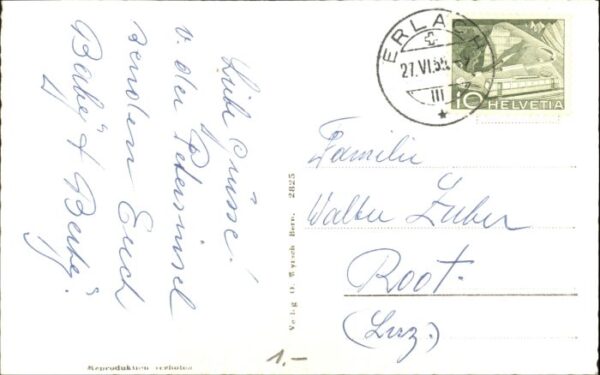 Liebe Grüsse!
v. der Petersinsel
senden Euch
ERLACH
27.VI.55
III
10 HELVETIA
Familie
Walter Zuber
Root.
(Luz.)
Verlag O. Wyrsch Bern. 2825
Reproduktion verboten
1.-